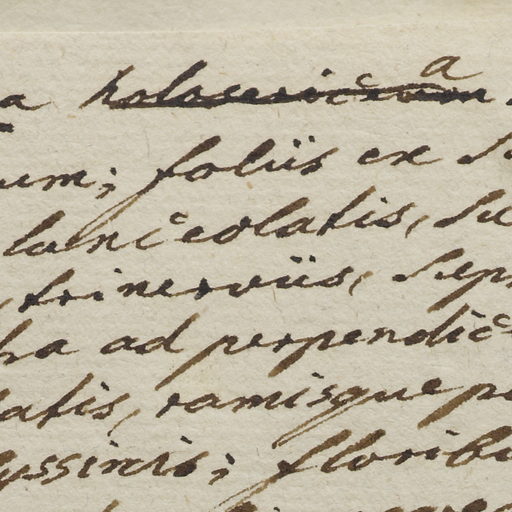 a holosericeum a
um; foliis ex su
lanceolatis, su
, trinerviis, sep
ha ad perpendic
latis, ramisque p
yssinis; florib